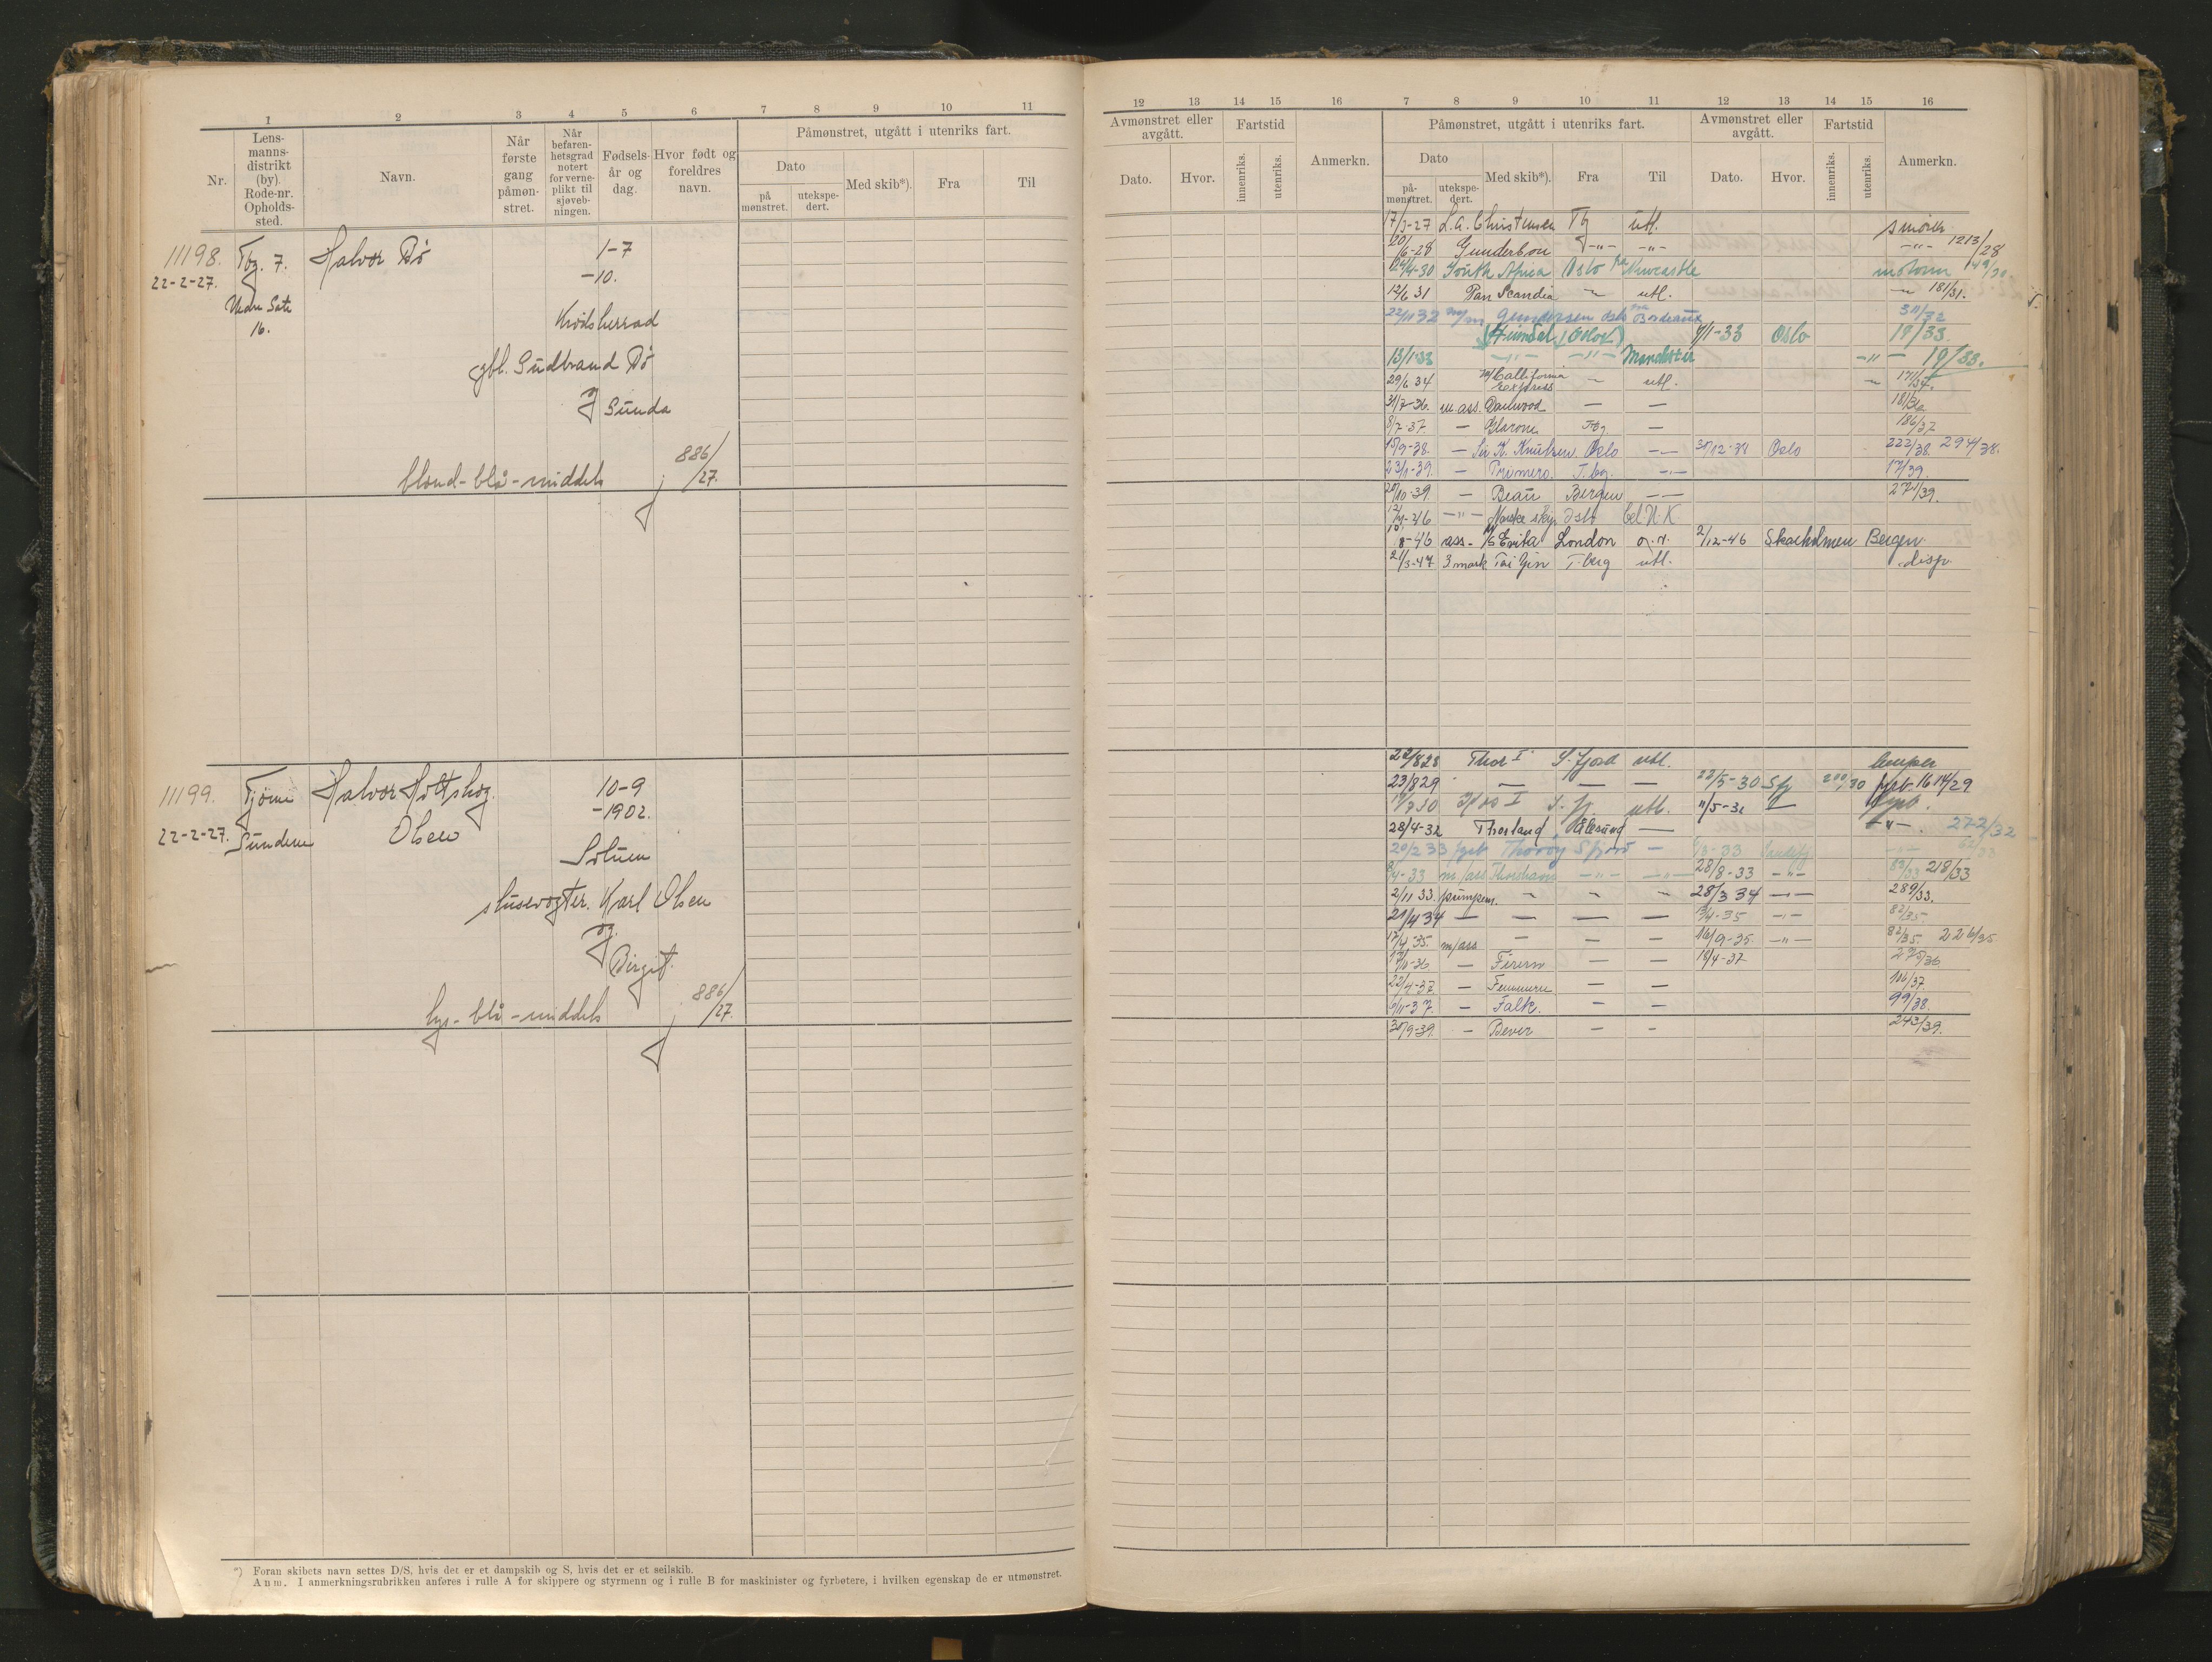 1 2 3 4 5 6 7 8 9 10 11
Nr. Lens-manns-distrikt (by). Rode-nr. Opholds-sted. Navn. Når første gang påmøn-stret. Når befaren-hetsgrad notert for verne-plikt til sjøveb-ningen. Fødsels-år og dag. Hvor født og foreldres navn. Påmønstret, utgått i utenriks fart.
Dato Med skib*). Fra Til
på mønstret. utekspe-dert.
11198. Tbg. 7. Halvor Bö 1-7
22-2-27. -10.
16. Krödsherrad
gbl. Gudbrand Bö
og Gunda
blond-blå-middels 886/27.
11199. Tjöme Halvor Holtskog 10-9
22-2-27. Sundene Olsen -1902.
Solum
slusevogter. Karl Olsen
og
Birgit.
lys-blå-middels 886/27.
*) Foran skibets navn settes D/S, hvis det er et dampskib og S, hvis det er et seilskib.
Anm. I anmerkningsrubrikken anføres i rulle A for skippere og styrmenn og i rulle B for maskinister og fyrbøtere, i hvilken egenskap de er utmønstret.
12 13 14 15 16 7 8 9 10 11 12 13 14 15 16
Avmønstret eller avgått. Fartstid Anmerkn. Påmønstret, utgått i utenriks fart. Avmønstret eller avgått. Fartstid Anmerkn.
Dato. Hvor. innenriks. utenriks. Dato Med skib*). Fra Til Dato. Hvor. innenriks. utenriks.
på-mønstret. utekspe-dert.
17/3-27 L.A. Christensen Tbg utl. smörer
20/6-28 Gunderson -"- -"- -"- 1213/28
24/4-30 South Africa Oslo Newcastle motorm 149/30
12/6 31 Pan Scandia - utl. - 181/31.
22/11 32 m/m Gundersen Oslo Bordeaux 311/32
(Heimdal, Oslo) 9/1-33 Oslo 19/33.
13/1-33 -"- -"- Manchester -"- 19/33.
29/6 34 California Express - utl. - 171/34.
31/7-36. m.ass. - - 181/36
8/7-37. - Glarona Tbg - 186/37
15/9-38. - Sir K. Knudsen Oslo - 31/12-38 Oslo 222/38. 294/38.
23/1-39. - Primero T.bg. -"- 17/39.
20/10-39. - Beau Bergen - 271/39.
-46 -"- Norske skip Oslo U.K
8-46 ass- M/S Evita London o.r. 2/12-46 Skoltholmen Bergen
21/3-47 3.mask Tai Yin T.berg utl. disp.
22/8 28 Thor I S.fjord utl. lemper
23/8 29 - - - 22/5-30 Sfj 200/30 fyrb. 1614/29
Thor I S.fj utl. 11/5-31 - fyrb.
28/4-32 Thorland Ålesund - -"-. 272/32
20/2 33 fyrb Thoröy Sfjord - /3-33 Sandefj -"- 62/33
8/4-33 m/ass Thorshavn -"- -"- 28/8-33 -"- 83/33 218/33
2/11 33. pumpem. - - - 28/3 34 -"- 289/33.
21/4 34 - - - - 13/4-35 -"- 82/35.
17/4-35. m/ass - - - 16/9-35 -"- 82/35. 226/35
/10-36 - Firern - - 18/4-37 275/36
22/4-37. - Femmern - - 116/37.
/11-37. - Falk. - - 99/38.
30/9-39. - Bever - - 243/39.